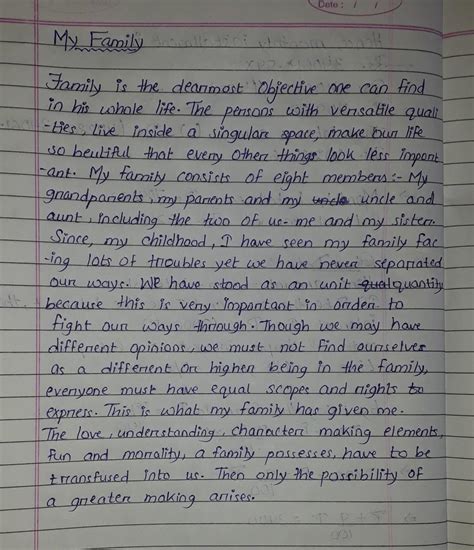 Date: / /
My Family
Family is the dearmost Objective one can find
in his whole life. The persons with versatile quali
-ties, live inside a singular space, make our life
so beutiful that every other things look less import
-ant. My family consists of eight members:- My
grandparents, my parents and my uncle uncle and
aunt, including the two of us- me and my sister.
Since, my childhood, I have seen my family fac
-ing lots of troubles yet we have never separated
our ways. We have stood as an unit qual quantity
because this is very important in order to
fight our ways through. Though we may have
different opinions, we must not find ourselves
as a different or higher being in the family,
everyone must have equal scopes and rights to
express. This is what my family has given me.
The love, understanding, character making elements,
fun and morality, a family possesses, have to be
trransfused into us. Then only the possibility of
a greater making arises.